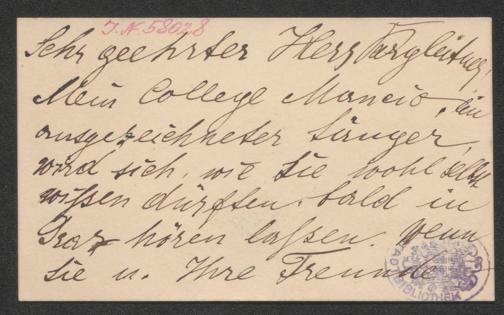 J. N. 58028
Sehr geehrter Herr Purgleitner,
Mein College Mancio, ein
ausgezeichneter Sänger,
wird sich, wie Sie wohl selbst
wißen dürften, bald in
Graz hören laßen. Wenn
Sie u. Ihre Freunde
STADTBIBLIOTHEK